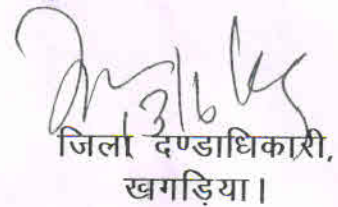 जिला दण्डाधिकारी,
खगड़िया।